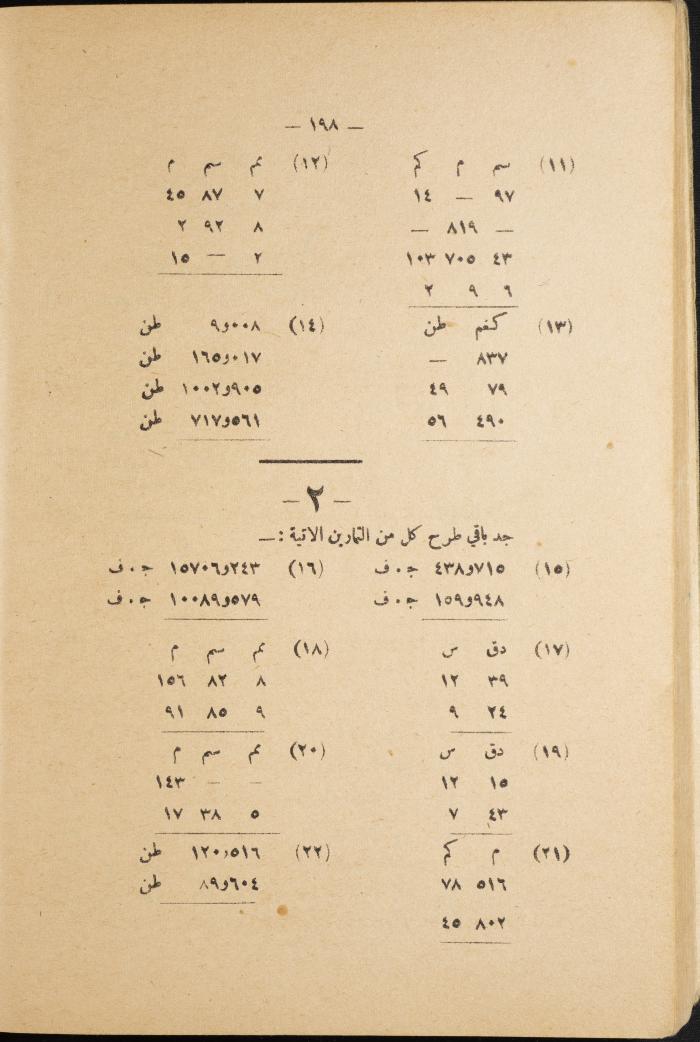 — ١٩٨ —
(١١) سم م كم
٩٧ — ١٤
— ٨١٩ —
٤٣ ٧٠٥ ١٠٣
٦ ٩ ٢
(١٢) مم سم م
٧ ٨٧ ٤٥
٨ ٩٢ ٢
٢ — ١٥
(١٣) كغم طن
٨٣٧ —
٧٩ ٤٩
٤٩٠ ٥٦
(١٤) ٠٠٨و٩ طن
٠١٧و١٦٥ طن
٩٠٥و١٠٠٢ طن
٥٦١و٧١٧ طن
— ٢ —
جد باقي طرح كل من التمارين الاتية :—
(١٥) ٧١٥و٤٣٨ ج.ف
٩٤٨و١٥٩ ج.ف
(١٦) ٢٤٣و١٥٧٠٦ ج.ف
٥٧٩و١٠٠٨٩ ج.ف
(١٧) دق س
٣٩ ١٢
٢٤ ٩
(١٨) مم سم م
٨ ٨٢ ١٥٦
٩ ٨٥ ٩١
(١٩) دق س
١٥ ١٢
٤٣ ٧
(٢٠) مم سم م
— — ١٤٣
٥ ٣٨ ١٧
(٢١) م كم
٥١٦ ٧٨
٨٠٢ ٤٥
(٢٢) ٥١٦و١٢٠ طن
٦٠٤و٨٩ طن